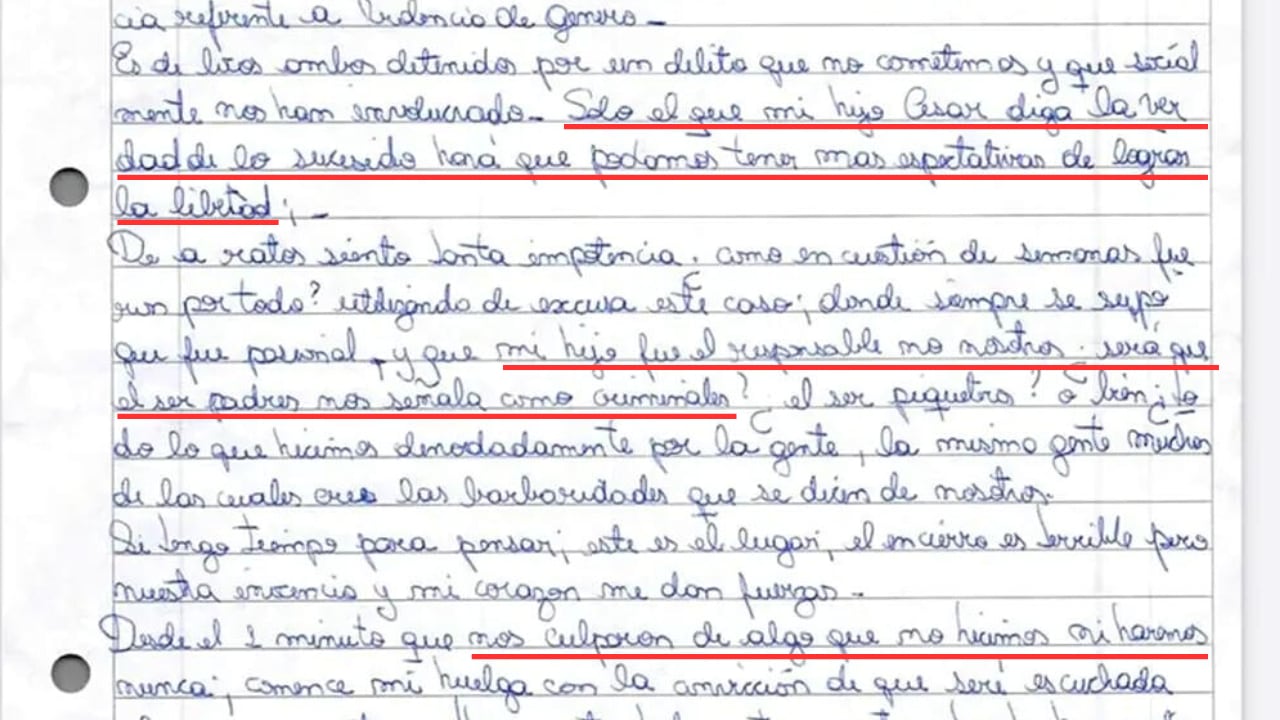 cia referente a Violencia de Genero_
Es de locos ambos detenidos por un delito que no cometimos y que social
mente nos han involucrado_ Solo el que mi hijo Cesar diga la ver
dad de lo sucesido hará que podamos tener mas espectativas de lograr
la libertad; _
De a ratos siento tanta impotencia. como en cuestión de semanas fue
por todo? utilizando de excusa este caso; donde siempre se supo
que fue pasional, y que mi hijo fue el responsable no nosotros. será que
el ser padres nos señala como criminales? ¿el ser piquetero? ¿ó bien; ¿to
do lo que hicimos denodadamente por la gente, la misma gente muchos
de las cuales cree las barbaridades que se dicen de nosotros.
Si tengo tiempo para pensar; este es el lugar, el encierro es terrible pero
nuestra inocencia y mi corazon me dan fuerzas_
Desde el 1 minuto que nos culparon de algo que no hicimos ni haremos
nunca; comence mi huelga con la de que seré escuchada